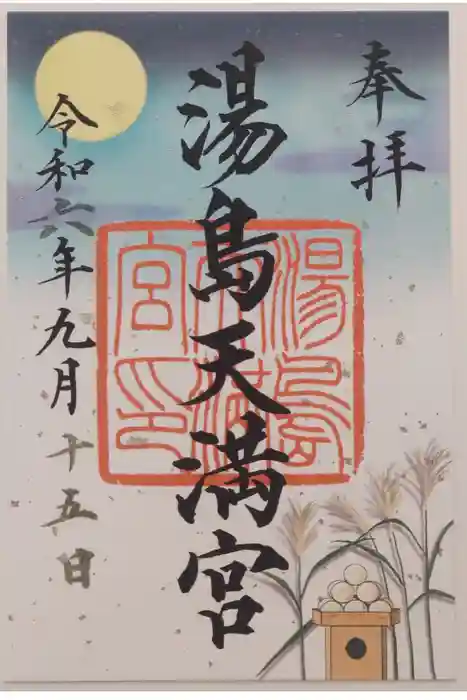 奉拝
湯島天満宮
令和六年九月十五日
湯島天満宮印